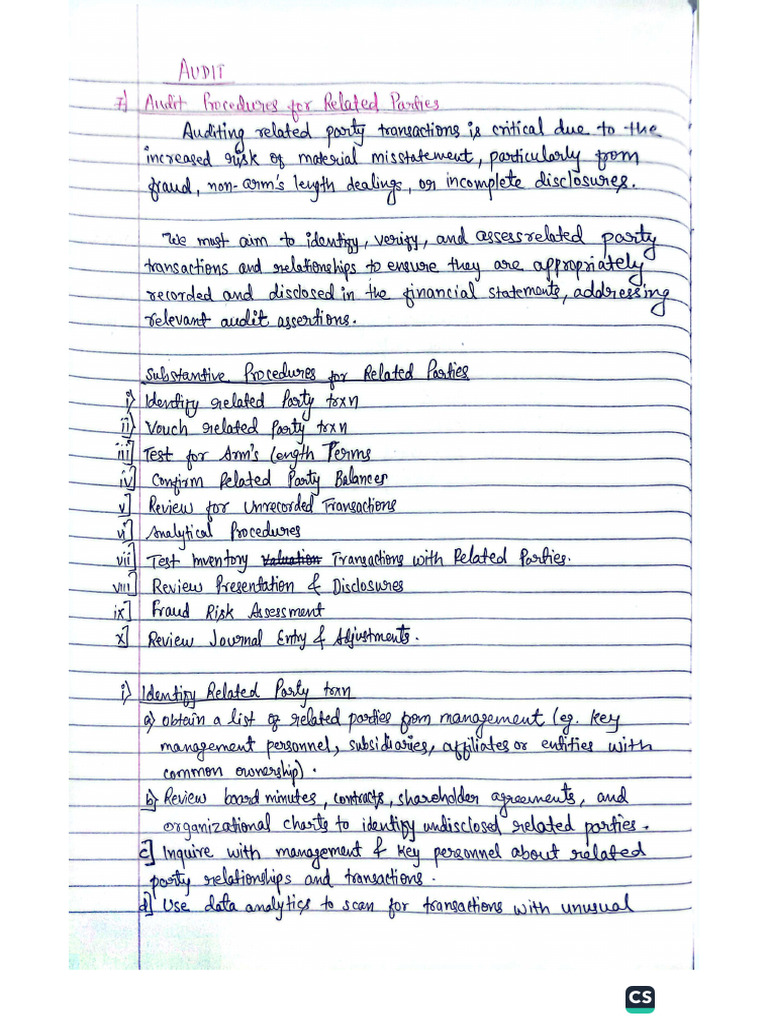 AUDIT
7) Audit Procedures for Related Parties
Auditing related party transactions is critical due to the
increased risk of material misstatement, particularly from
fraud, non-arm's length dealings, or incomplete disclosures.
We must aim to identify, verify, and assess related party
transactions and relationships to ensure they are appropriately
recorded and disclosed in the financial statements, addressing
relevant audit assertions.
Substantive Procedures for Related Parties
i) Identify related Party trxn
ii) Vouch related Party trxn
iii] Test for Arm's Length Terms
iv] Confirm Related Party Balances
v] Review for Unrecorded Transactions
vi] Analytical Procedures
vii] Test Inventory Valuation Transactions with Related Parties.
viii] Review Presentation & Disclosures
ix] Fraud Risk Assessment
x] Review Journal Entry & Adjustments.
i) Identify Related Party trxn
a) obtain a list of related parties from management (eg. key
management personnel, subsidiaries, affiliates or entities with
common ownership).
b) Review board minutes, contracts, shareholder agreements, and
organizational charts to identify undisclosed related parties.
c] Inquire with management & key personnel about related
party relationships and transactions.
d] Use data analytics to scan for transactions with unusual
CS